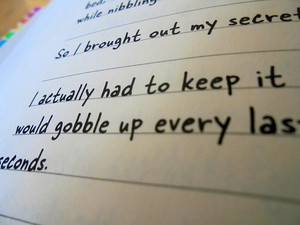 bed.
while nibbling
So I brought out my secret
I actually had to keep it
would gobble up every las
seconds.